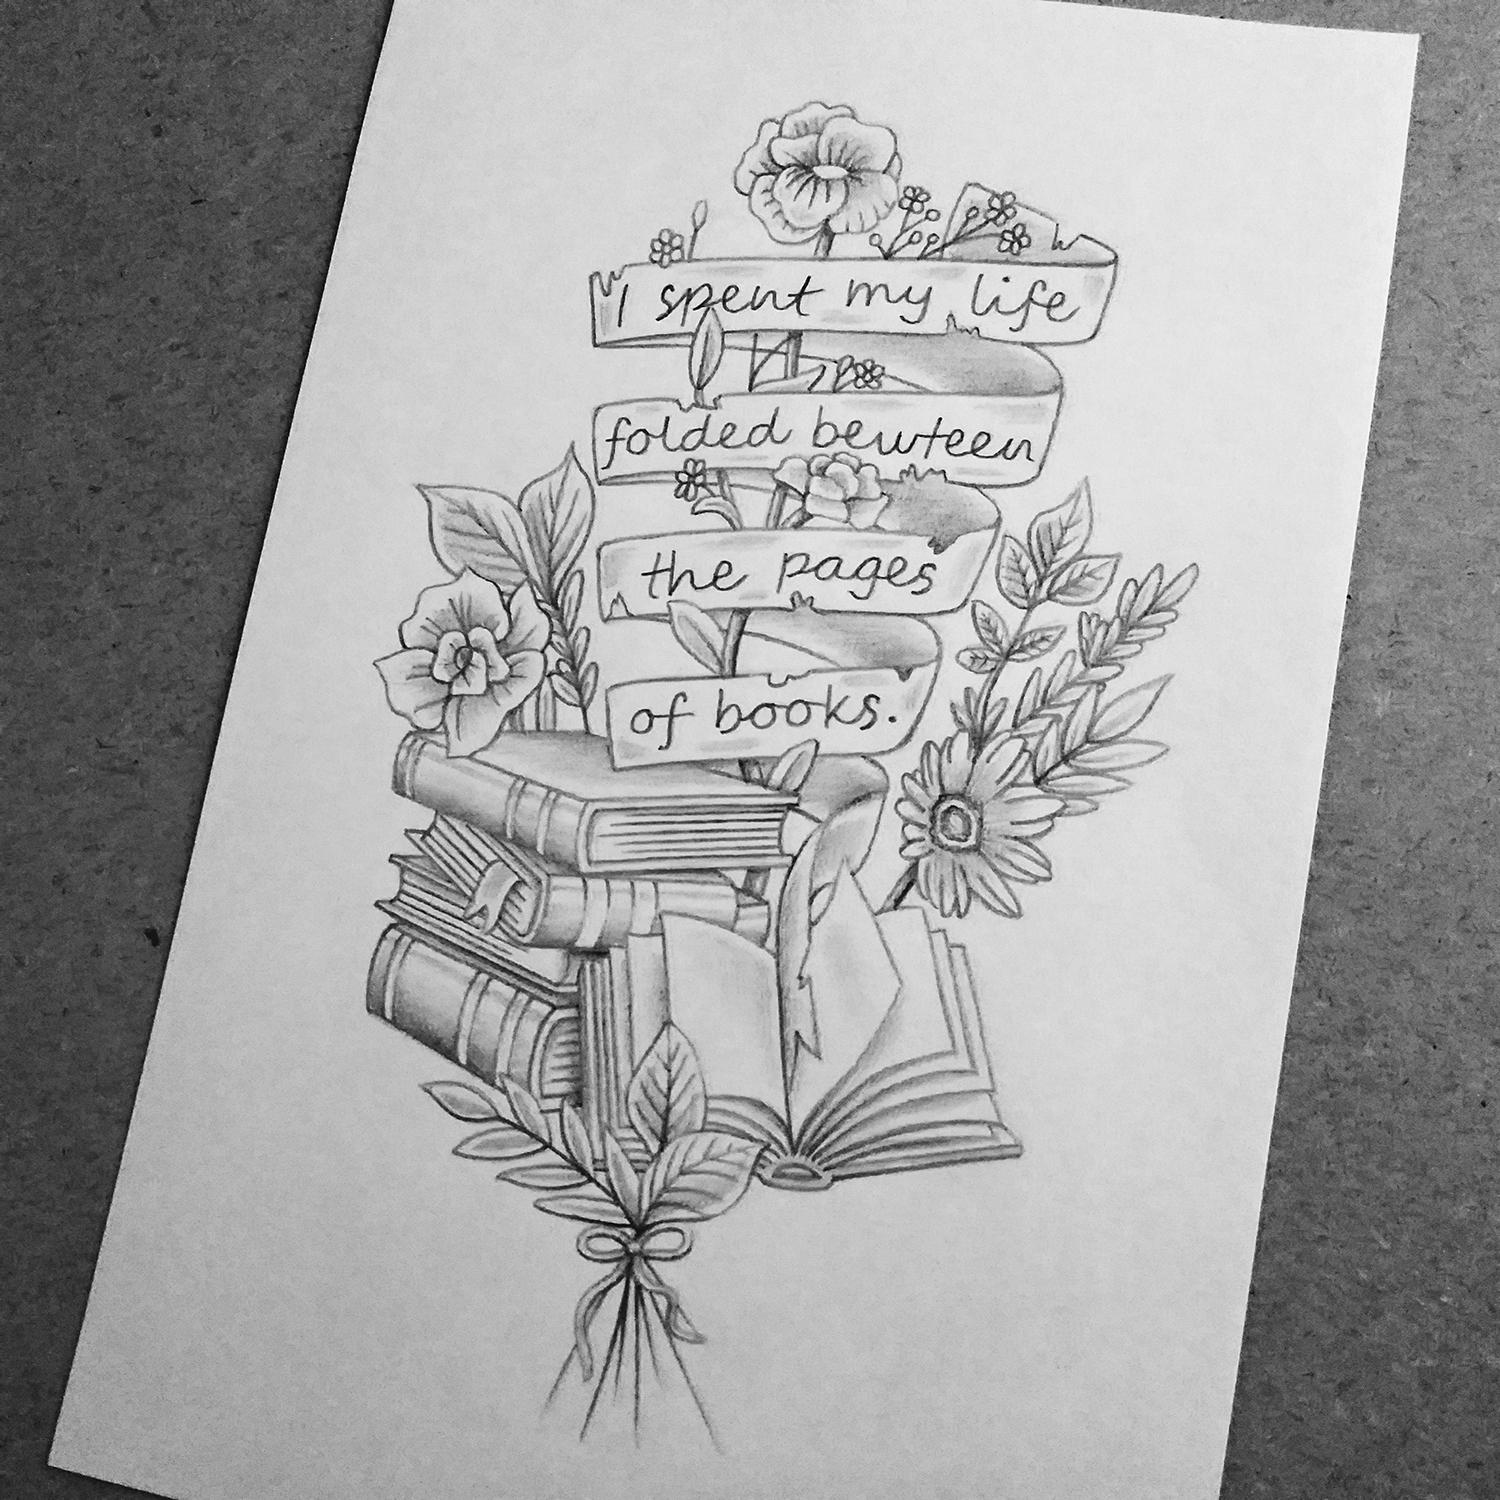 I spent my life
folded bewteen
the pages
of books.